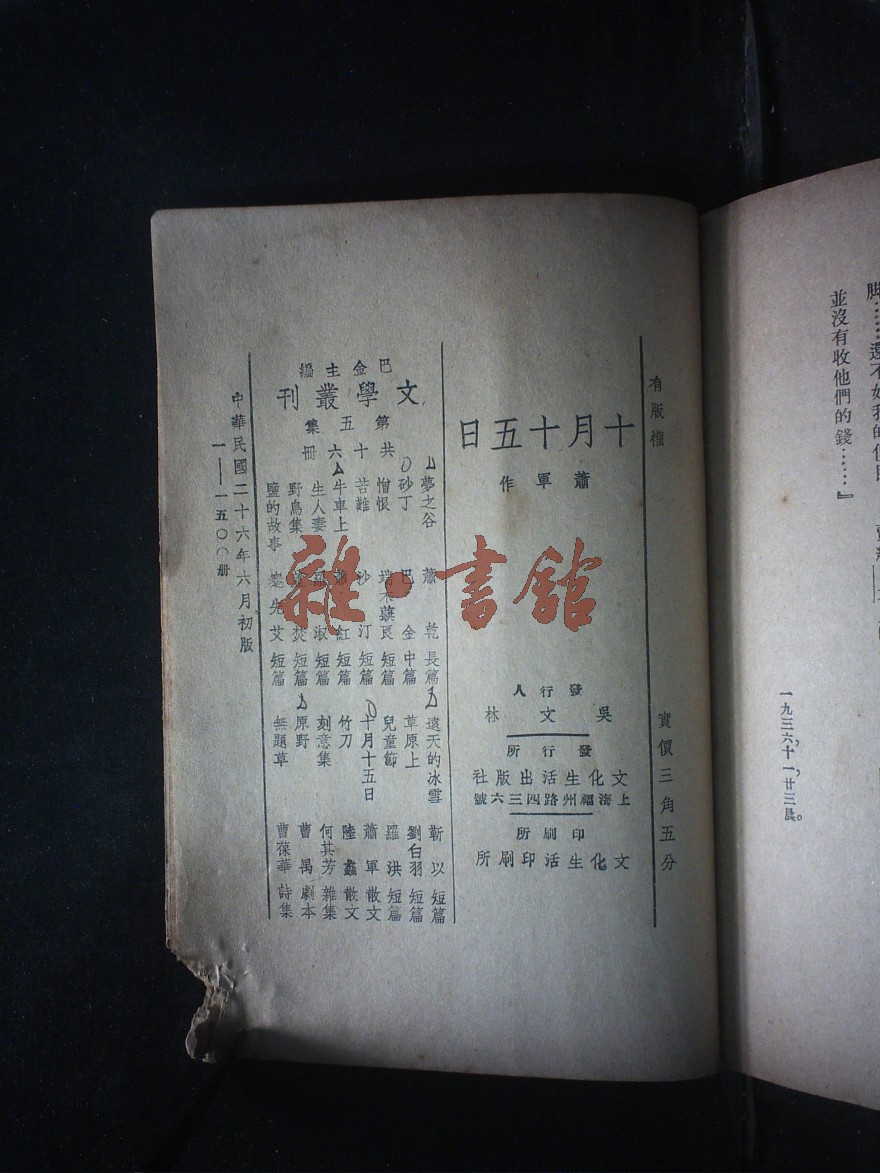 脚……還不如我的
並沒有收他們的錢……』
一九三六，十一，廿三晨。
有版權
實價三角五分
十月十五日
蕭軍作
發行人
吳文林
發行所
文化生活出版社
上海福州路四三六號
印刷所
文化生活印刷所
巴金主編
文學叢刊
第五集
共十六冊
夢之谷 蕭乾 長篇 遠天的冰雪 靳以 短篇
砂丁 巴金 中篇 草原上 劉白羽 短篇
憎恨 端木蕻良 短篇 兒童節 羅洪 短篇
苦難 沙汀 短篇 十月十五日 蕭軍 散文
牛車上 蕭紅 短篇 竹刀 陸蠡 散文
生人妻 羅淑 短篇 刻意集 何其芳 雜集
野鳥集 蘆焚 短篇 原野 曹禺 劇本
鹽的故事 蹇先艾 短篇 無題草 曹葆華 詩集
中華民國二十六年六月初版
一——一五〇〇冊
雜·書館